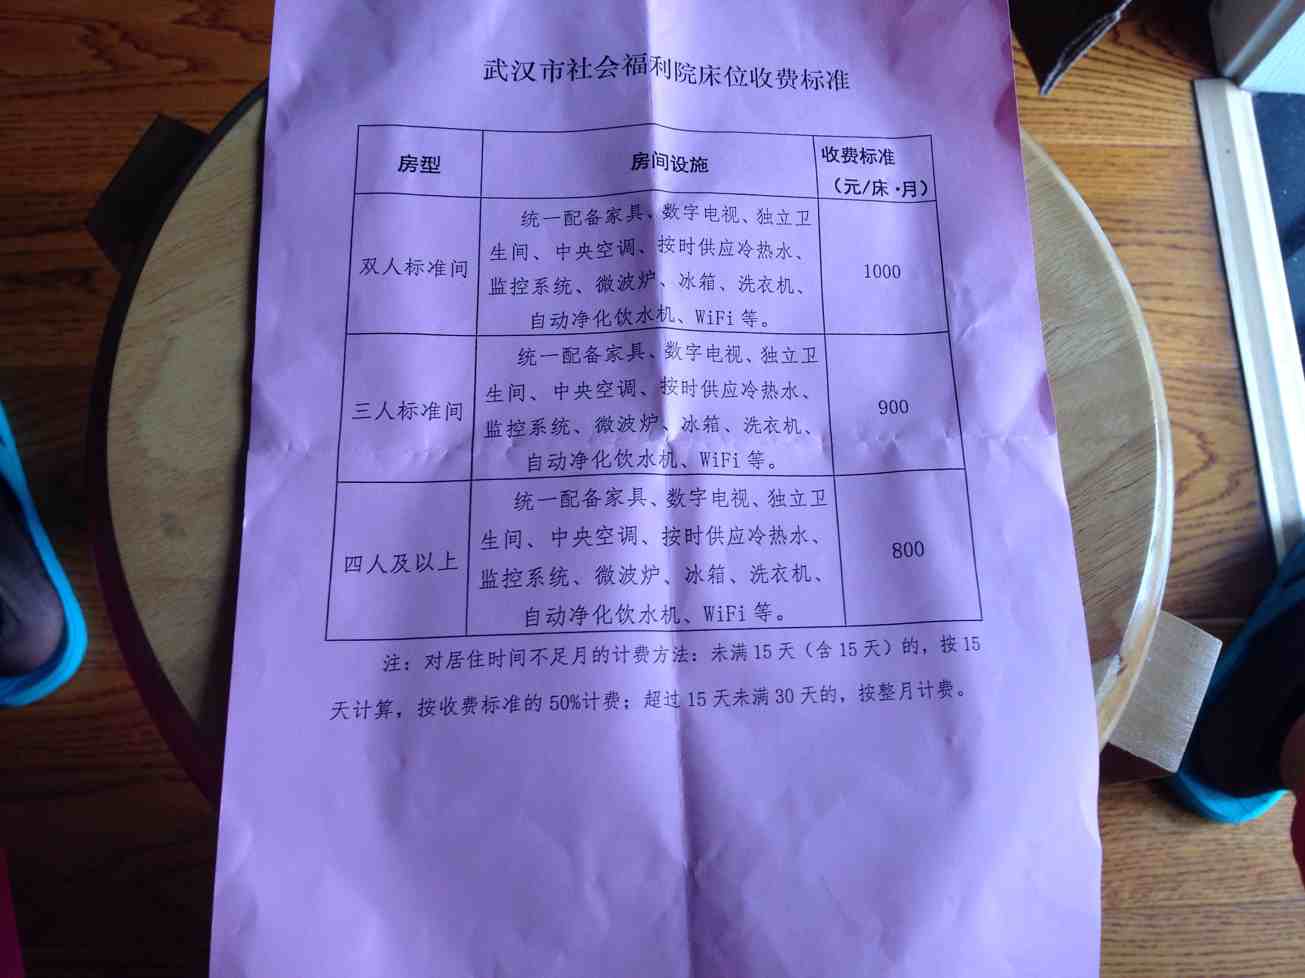 武汉市社会福利院床位收费标准
房型
房间设施
收费标准
（元/床·月）
双人标准间
统一配备家具、数字电视、独立卫
生间、中央空调、按时供应冷热水、
监控系统、微波炉、冰箱、洗衣机、
自动净化饮水机、WiFi等。
1000
三人标准间
统一配备家具、数字电视、独立卫
生间、中央空调、按时供应冷热水、
监控系统、微波炉、冰箱、洗衣机、
自动净化饮水机、WiFi等。
900
四人及以上
统一配备家具、数字电视、独立卫
生间、中央空调、按时供应冷热水、
监控系统、微波炉、冰箱、洗衣机、
自动净化饮水机、WiFi等。
800
注：对居住时间不足月的计费方法：未满15天（含15天）的，按15
天计算，按收费标准的50%计费；超过15天未满30天的，按整月计费。